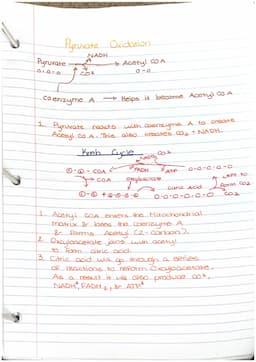 Pyruvate Oxidation
NADH
Pyruvate → Acetyl CoA
O-O-O CO2 O-O
coenzyme A → Helps it become Acetyl CoA
1. Pyruvate reacts with coenzyme A to create
Acetyl CoA. This also creates CO2 + NADH.
Kreb Cycle
NADH CO2
FADH ATP O-O-O-O
O-O-COA Oxyloacetate
→ COA Citric Acid
O-O-O-O-O-O CO2
1. Acetyl COA enters the Mitochondrial
matrix & loses the coenzyme A
& forms Acetyl (2-carbon).
2. Oxyloacetate joins with acetyl
to form citric acid.
3. Citric acid will go through a series
of reactions to reform Oxyloacetate.
As a result it will also produce CO2,
NADH, FADH2, & ATP